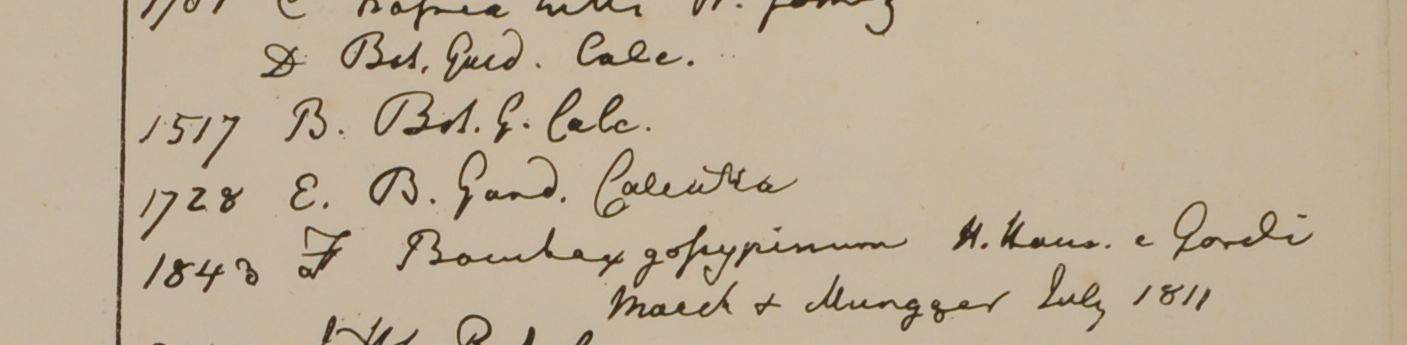 D Bot. Gard. Calc.
1517 B. Bot. G. Calc.
1728 E. B. Gard. Calcutta
1843 F Bombax gossypinum H. Ham. e
March & Mungger July 1811